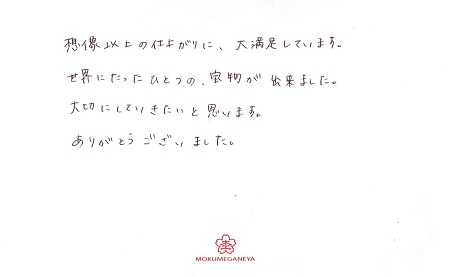 想像以上の仕上がりに、大満足しています。
世界にたったひとつの、宝物が出来ました。
大切にしていきたいと思います。
ありがとうございました。
MOKUMEGANEYA